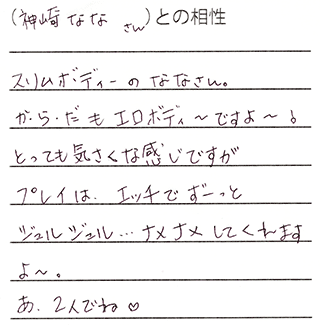 (神崎なな さん)との相性
スリムボディーのななさん。
か・ら・だもエロボディ～ですよ～!
とっても気さくな感じですが
プレイは、エッチでずーっと
ジュルジュル…ナメナメしてくれます
よ～。
あ、2人でね♡